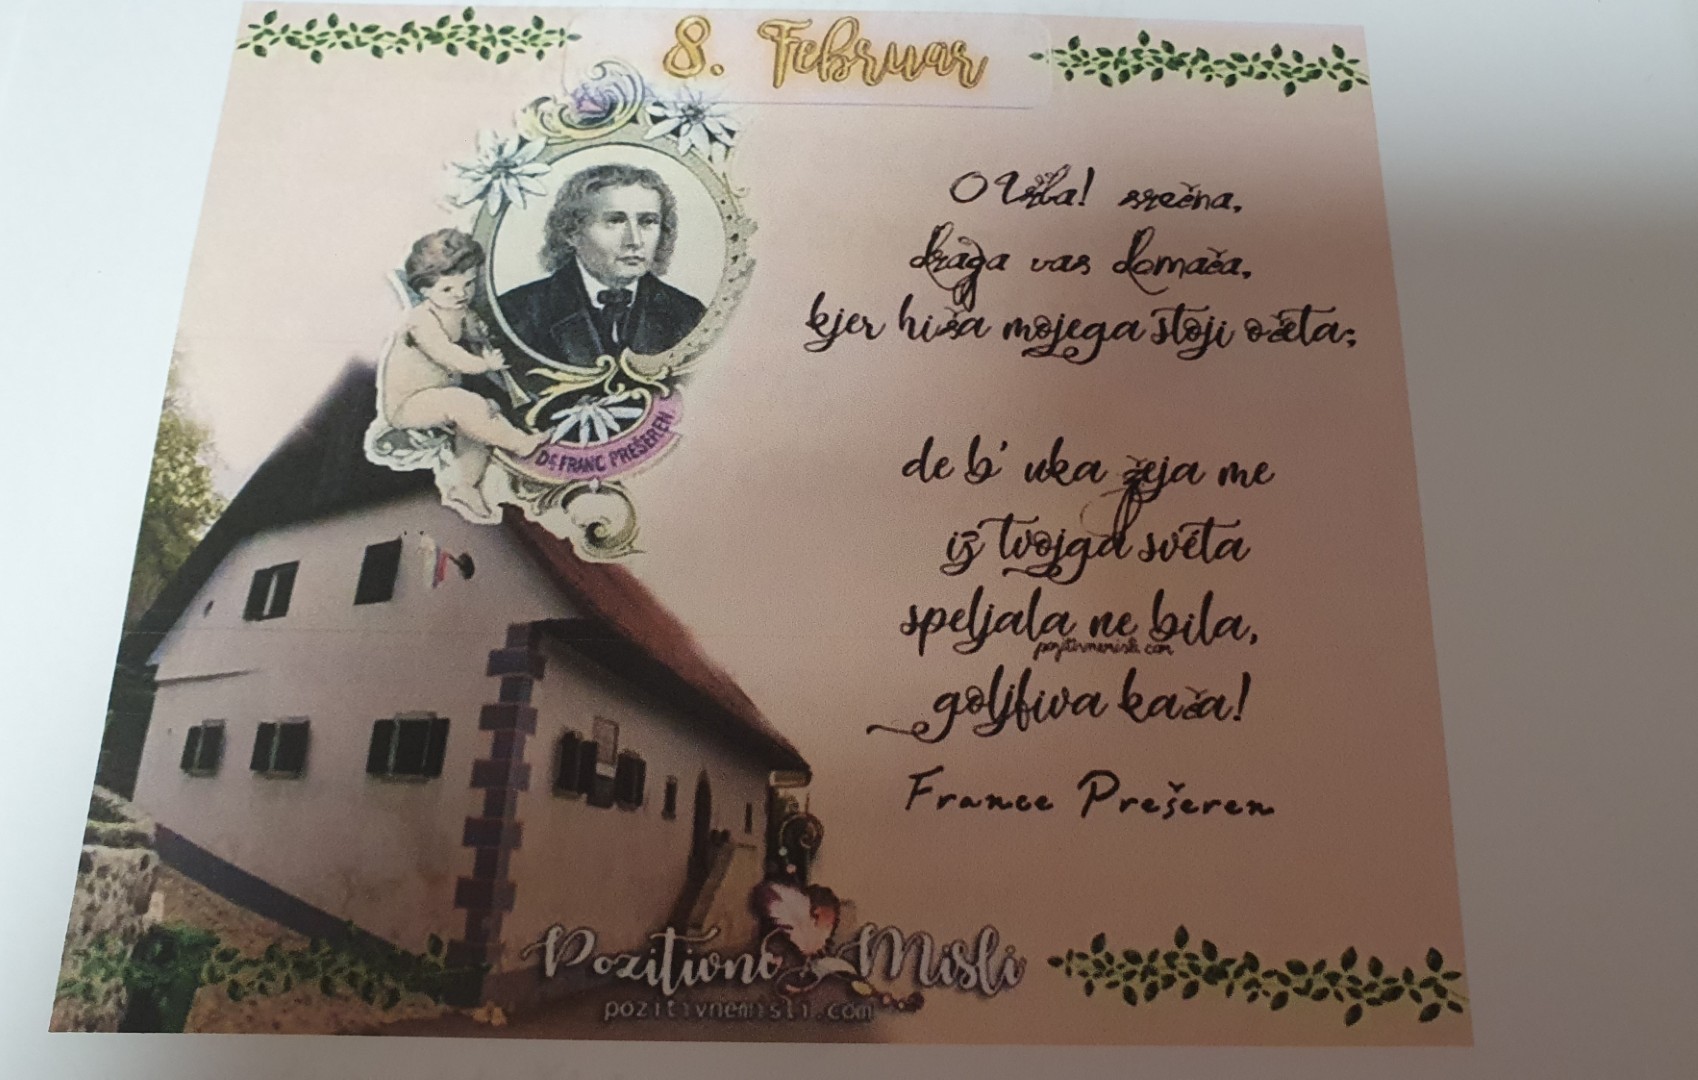 8. Februar
O Vrba! srečna,
draga vas domača,
kjer hiša mojega stoji očeta;
Dr. FRANC PREŠEREN
de b' uka žeja me
iz tvojga svéta
speljala ne bila,
pozitivnemisli.com
goljfiva kača!
France Prešeren
Pozitivne Misli
pozitivnemisli.com